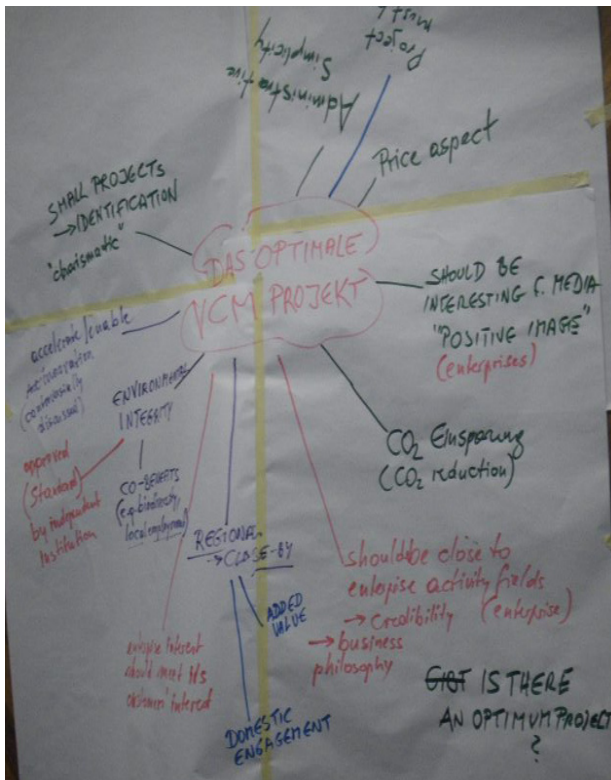 Administrative
Simplicity
Project
Must
Price aspect
SMALL PROJECTS
→ IDENTIFICATION
"charismatic"
DAS OPTIMALE
VCM PROJEKT
SHOULD BE
INTERESTING F. MEDIA
"POSITIVE IMAGE"
(enterprises)
accelerate/enable
(controversially
discussed)
ENVIRONMENTAL
INTEGRITY
approved
(Standard)
by independent
Institution
CO-BENEFITS
(e.g. biodiversity,
local employment)
CO₂ Einsparung
(CO₂ reduction)
REGIONAL
→ CLOSE-BY
ADDED
VALUE
DOMESTIC
ENGAGEMENT
should be close to
enterprise activity fields
→ credibility (enterprise)
→ business
philosophy
enterprise interest
should meet its
customers' interest
GIBT IS THERE
AN OPTIMUM PROJECT
?